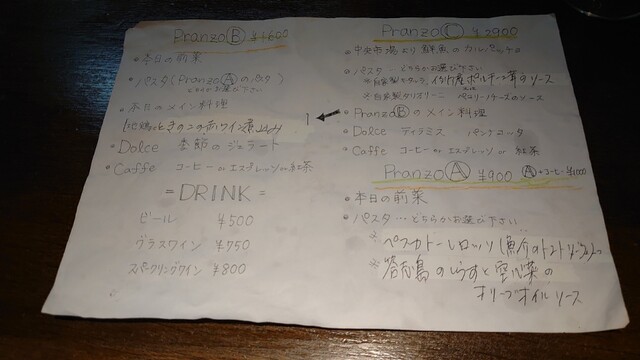 PranzoⒷ ¥1600
・本日の前菜
・パスタ(PranzoⒶのパスタ)
どちらかお選び下さい
・本日のメイン料理
地鶏ときのこの白ワイン煮込み
・Dolce 季節のジェラート
・Caffe コーヒー or エスプレッソ or 紅茶
=DRINK=
ビール ¥500
グラスワイン ¥750
スパークリングワイン ¥800
PranzoⒸ ¥2900
・中央市場より鮮魚のカルパッチョ
・パスタ…どちらかお選び下さい
※自家製 イタリア産ポルチーニ茸のソース
※自家製タリオリーニ ペコリーノチーズのソース
・PranzoⒷのメイン料理
・Dolce ティラミス or パンナコッタ
・Caffe コーヒー or エスプレッソ or 紅茶
PranzoⒶ ¥900 Ⓐ+コーヒー ¥1000
・本日の前菜
・パスタ…どちらかお選び下さい
※ペスカトーレロッソ(魚介のトマトソース)
※答志島のしらすと空心菜の
オリーブオイルソース